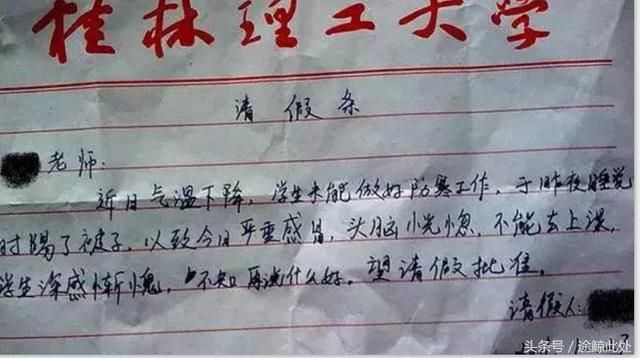 桂林理工大学
请假条
老师:
近日气温下降,学生未能做好防寒工作,于昨夜睡觉
时踢了被子,以致今日严重感冒,头脑恍惚,不能去上课,
学生深感惭愧,不知再说什么好。望请假批准。
请假人:
头条号 / 途鲸此处